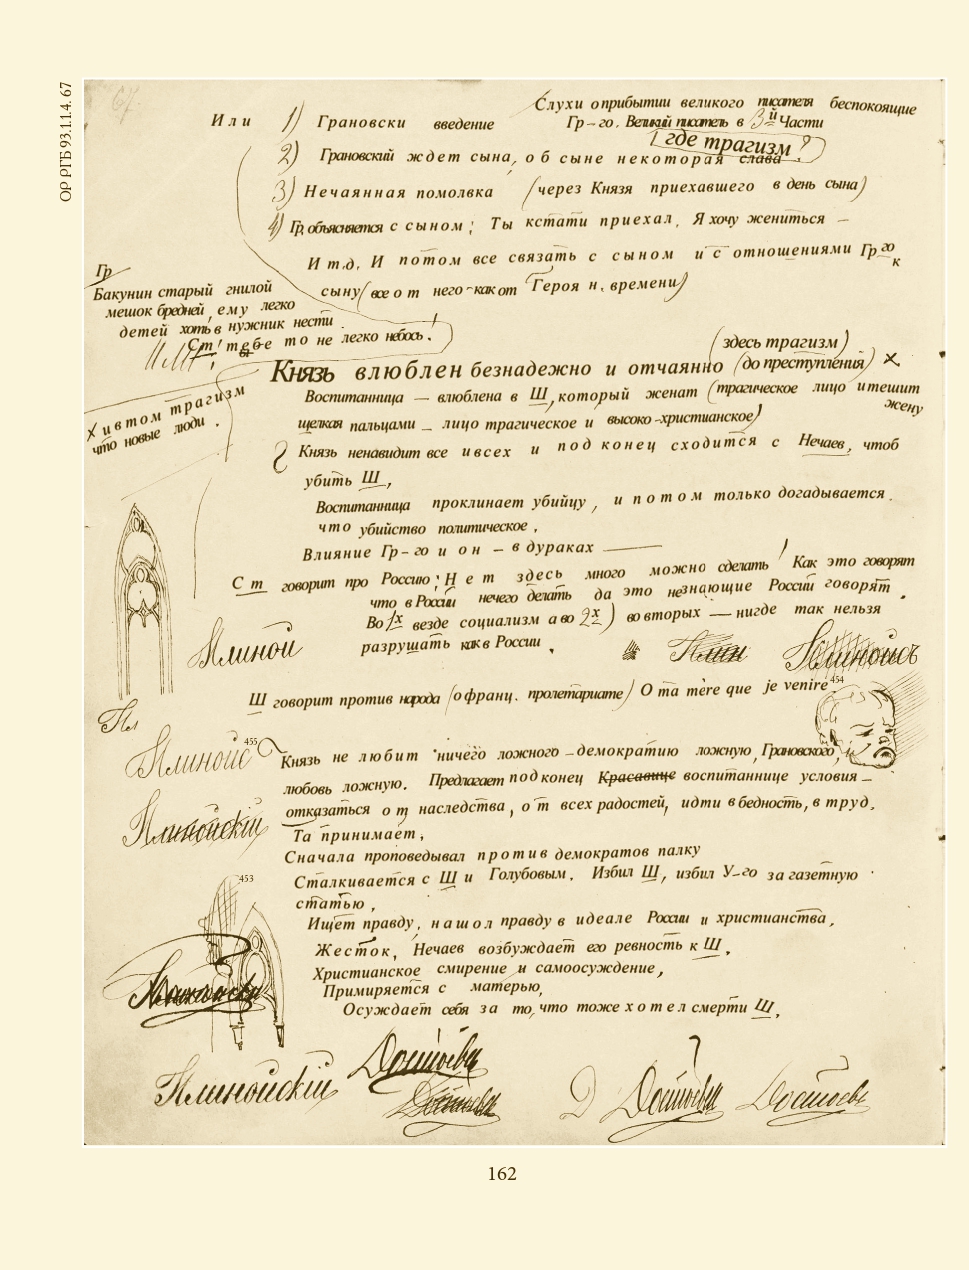 ОР РГБ 93.1.1.4. 67
67.
Слухи о прибытии великого писателя беспокоящие
Или 1) Грановски введение Гр–го. Великий писатель в 3й Части
где трагизм?
2) Грановский ждет сына, об сыне некоторая слава.
3) Нечаянная помолвка (через Князя приехавшего в день сына)
4) Гр. объясняется с сыном; Ты кстати приехал, Я хочу жениться –
И т.д. И потом все связать с сыном и с отношениями Гр го к
сыну (все от него – как от Героя н. времени)
Гр
Бакунин старый гнилой
мешок бредней, ему легко
детей хоть в нужник нести
Ст! тебе то не легко небось.!
(здесь трагизм)
Князь влюблен безнадежно и отчаянно (до преступления) х
Воспитанница — влюблена в Ш, который женат (трагическое лицо и тешит жену
щелкая пальцами – лицо трагическое и высоко-христианское)
х и в том трагизм
что новые люди.
Князь ненавидит все и всех и под конец сходится с Нечаев, чтоб
убить Ш,
Воспитанница проклинает убийцу, и потом только догадывается.
что убийство политическое,
Влияние Гр–го и он – в дураках ——
Ст говорит про Россию; Нет здесь много можно сделать! Как это говорят
что в России нечего делать да это незнающие России говорят.
Во 1х везде социализм а во 2х) во вторых — нигде так нельзя
разрушать как в России,
Ш говорит против народа (о франц. пролетариате) O ta mère que je veniré 454
455
Князь не любит ничего ложного – демократию ложную, Грановского,
любовь ложную. Предлагает под конец Красавице воспитаннице условия –
отказаться от наследства, от всех радостей, идти в бедность, в труд.
Та принимает,
Сначала проповедывал против демократов палку
Сталкивается с Ш и Голубовым. Избил Ш, избил У–го за газетную
статью,
453
Ищет правду, нашол правду в идеале России и христианства,
Жесток, Нечаев возбуждает его ревность к Ш,
Христианское смирение и самоосуждение,
Примиряется с матерью,
Осуждает себя за то, что тоже хотел смерти Ш,
Достоевс
Достоевс
Д Достоевс
Достоевс
162